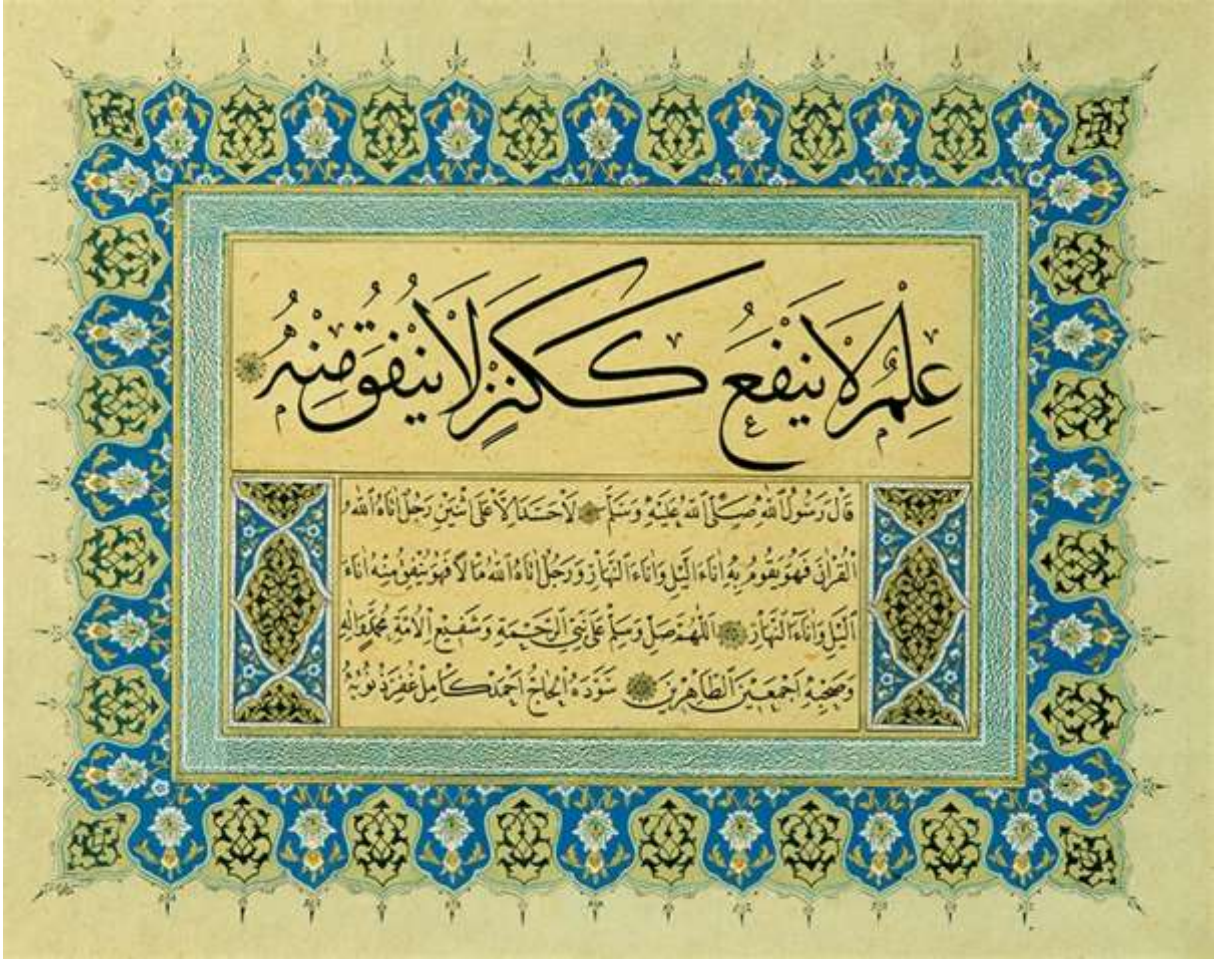 عِلْمٌ لَا يَنْفَعُ كَكَنْزٍ لَا يُنْفَقُ مِنْهُ
قَالَ رَسُولُ ٱللّٰهِ صَلَّى ٱللّٰهُ عَلَيْهِ وَسَلَّمَ لَا حَسَدَ اِلَّا عَلَى اثْنَيْنِ رَجُلٌ اٰتَاهُ ٱللّٰهُ
ٱلْقُرْاٰنَ فَهُوَ يَقُومُ بِهِ اٰنَاءَ ٱلَّيْلِ وَاٰنَاءَ ٱلنَّهَارِ وَرَجُلٌ اٰتَاهُ ٱللّٰهُ مَالًا فَهُوَ يُنْفِقُ مِنْهُ اٰنَاءَ
ٱلَّيْلِ وَاٰنَاءَ ٱلنَّهَارِ اَللّٰهُمَّ صَلِّ وَسَلِّمْ عَلَى نَبِيِّ ٱلرَّحْمَةِ وَشَفِيعِ ٱلْاُمَّةِ مُحَمَّدٍ وَاٰلِهِ
وَصَحْبِهِ اَجْمَعِينَ ٱلطَّاهِرِينَ سَوَّدَهُ ٱلْحَاجُّ اَحْمَدْ كَامِلْ غُفِرَ ذُنُوبُهُ